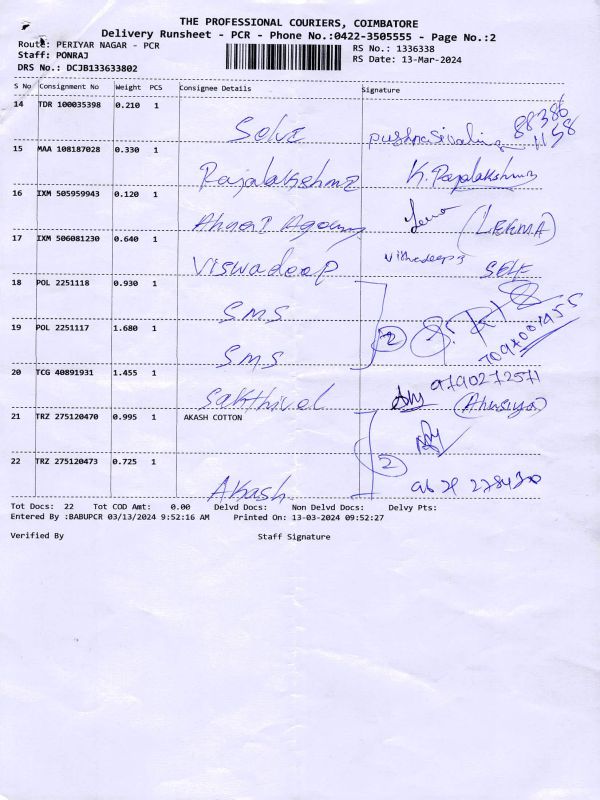 THE PROFESSIONAL COURIERS, COIMBATORE
Delivery Runsheet - PCR - Phone No.:0422-3505555 - Page No.:2
Route: PERIYAR NAGAR - PCR
RS No.: 1336338
Staff: PONRAJ
RS Date: 13-Mar-2024
DRS No.: DCJB133633802
S No Consignment No Weight PCS Consignee Details Signature
14 TDR 100035398 0.210 1
Selvi
88386
1158
15 MAA 108187028 0.330 1
Rajalakshmi K. Rajalakshmi
16 IXM 505959943 0.120 1
(LEEMA)
17 IXM 506081230 0.640 1
Viswadeep SELF
18 POL 2251118 0.930 1
SMS
2
19 POL 2251117 1.680 1
SMS
20 TCG 40891931 1.455 1
Sakthivel
9790272571
21 TRZ 275120470 0.995 1 AKASH COTTON
22 TRZ 275120473 0.725 1
2
Akash
Tot Docs: 22 Tot COD Amt: 0.00 Delvd Docs: Non Delvd Docs: Delvy Pts:
Entered By :BABUPCR 03/13/2024 9:52:16 AM Printed On: 13-03-2024 09:52:27
Verified By Staff Signature